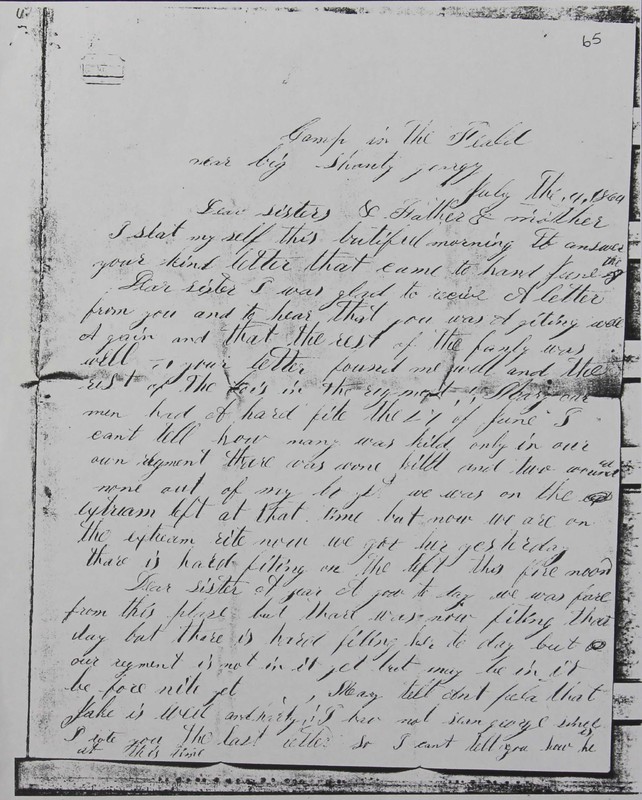 65
Camp in the Field
near big Shanty
July The 4, 1864
Dear sisters & Father & mother
I seat my self this butiful morning To answer
your kind letter that came to hand June the
Dear sister I was glad to receive A letter
from you and to hear that you was A giting well
A gain and that the rest of the family was
well your letter found me well and the
rest of the boys in the regment Mary our
men had A hard fite the 27 of June I
cant tell how many was kild only in our
own regment there was wone killd and two wounded
none out of my we was on the
extream left at that time but now we are on
the extream rite now we got her yesterday
thare is hard fiting on the left this fore noon
Dear Sister A year A go to day we was fore
from this place but thare was now fiting that
day but there is hard fiting her to day but
our regment is not in it yet but may be in it
be fore nite yet Mary tell that
Jake is well and harty I hav not san george since
I rote you the last letter so I cant tell you how he is
at this time